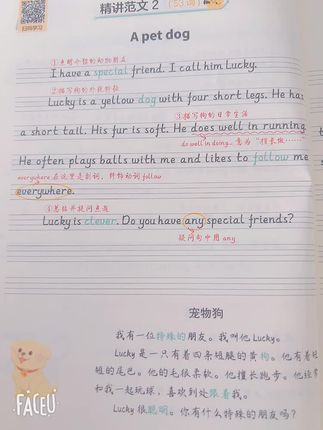 扫码学习
精讲范文2(53词)
A pet dog
①点明介绍的动物朋友
I have a special friend. I call him Lucky.
②描写狗的外貌特征
Lucky is a yellow dog with four short legs. He has
③描写狗的日常生活
a short tail. His fur is soft. He does well in running.
do well in doing... 意为“擅长做……”
He often plays balls with me and likes to follow me
everywhere 在这里是副词，修饰动词 follow
everywhere.
④总结并提问点题
Lucky is clever. Do you have any special friends?
疑问句中用 any
宠物狗
我有一位特殊的朋友。我叫他 Lucky。
Lucky 是一只有着四条短腿的黄狗。他有着短
短的尾巴。他的毛很柔软。他擅长跑步。他经常
和我一起玩球，喜欢到处跟着我。
Lucky 很聪明。你有什么特殊的朋友吗？
FACEU